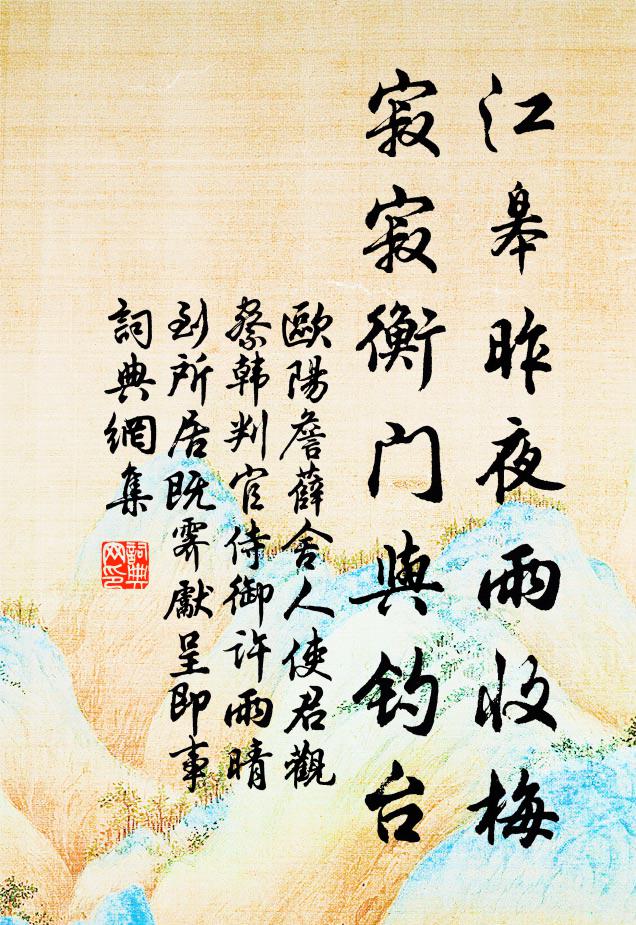 江皋昨夜雨收梅
寂寂衡门與钓台
歐陽詹薛舍人使君觀
察韩判官侍御许雨晴
到所居既霁獻呈即事
詞典網集
詞典網印